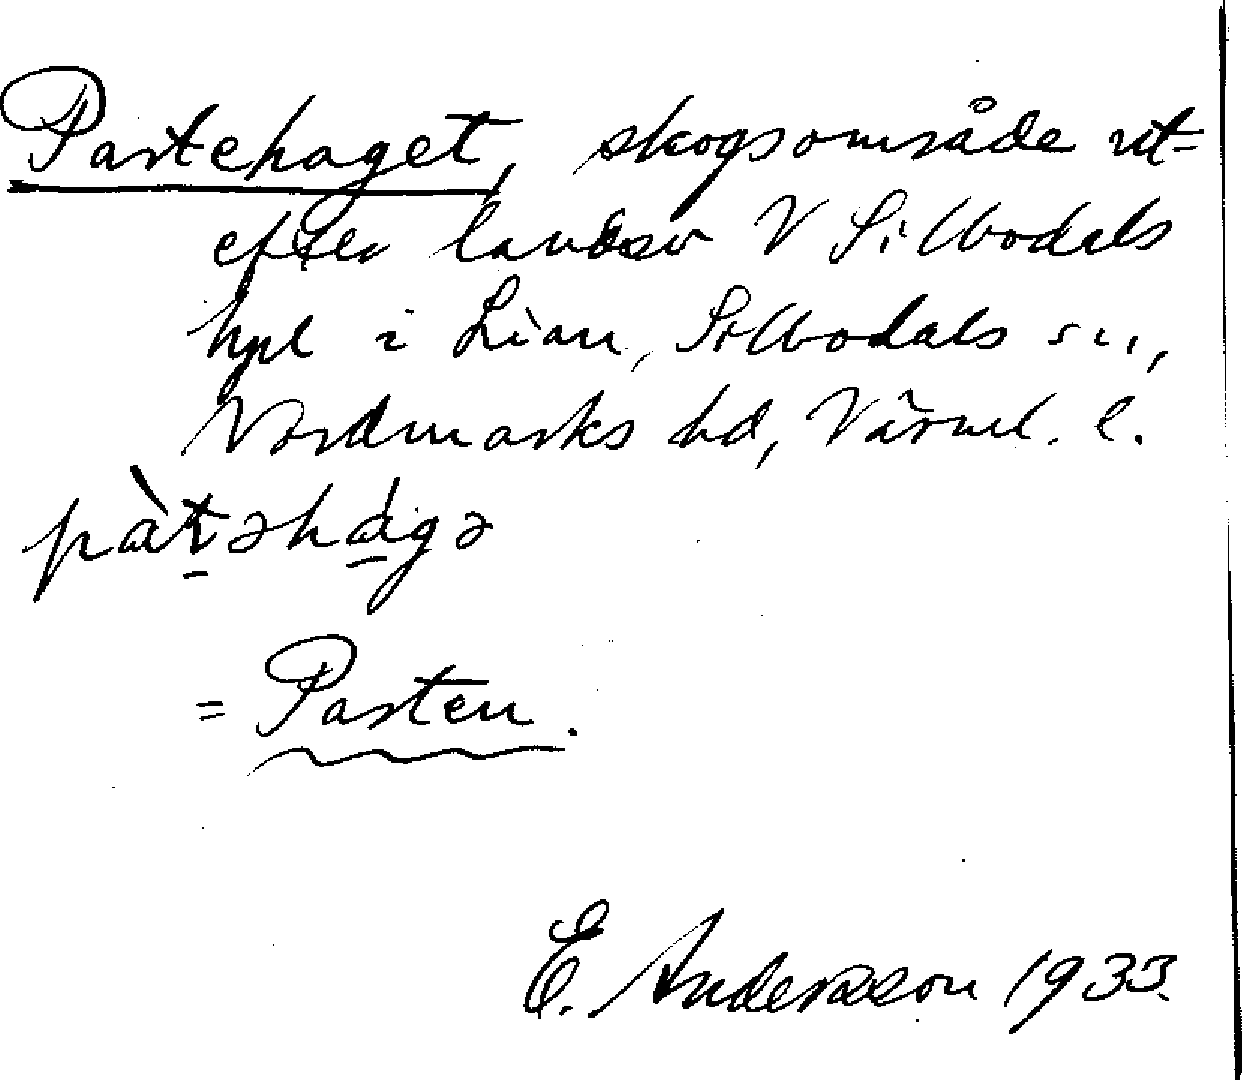 Partehaget, skogsområde ut-
efter landsv V Silbodals
hpl i Lian, Silbodals sn,
Nordmarks hd, Värml. l.
pàt̠əhág̠ə
= Parten.
E. Andersson 1933.